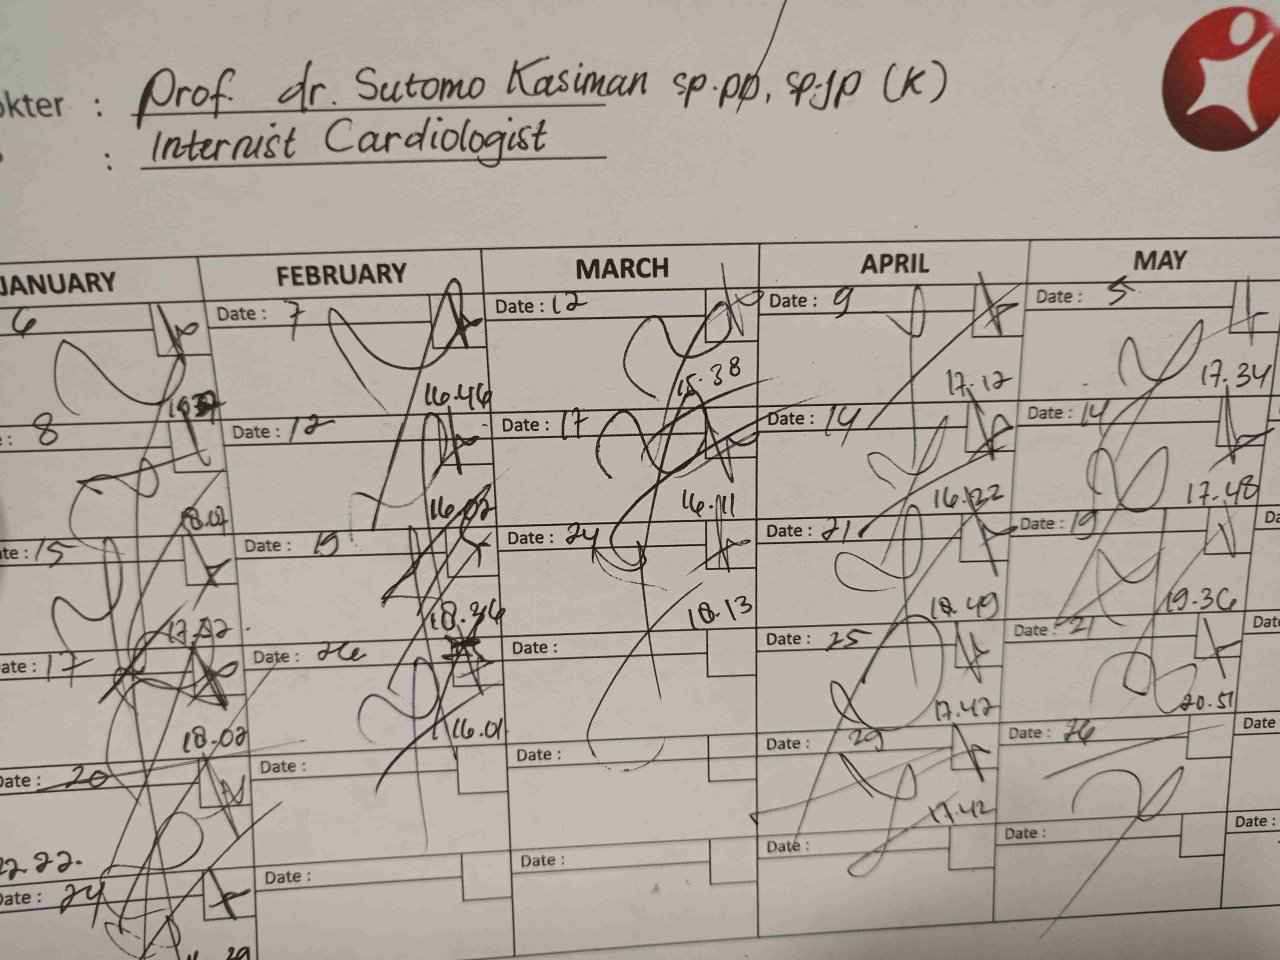 okter : Prof. dr. Sutomo Kasiman sp.pp, sp.jp (K)
: Internist Cardiologist
JANUARY FEBRUARY MARCH APRIL MAY
6 Date : 7 Date : 12 Date : 9 Date : 5
16.46 15.38 17.12 17.34
e : 8 Date : 12 Date : 17 Date : 14 Date : 14
18.07 16.02 16.11 16.22 17.48
ate : 15 Date : 19 Date : 24 Date : 21 Date : 19 Da
17.02 18.36 18.13 18.49 19.36
ate : 17 Date : 26 Date : Date : 25 Date : 21 Date
18.02 16.01 17.42 20.51
Date : 20 Date : Date : Date : 29 Date : 26 Date
22.22. 17.42
Date : 24 Date : Date : Date : Date : Date :